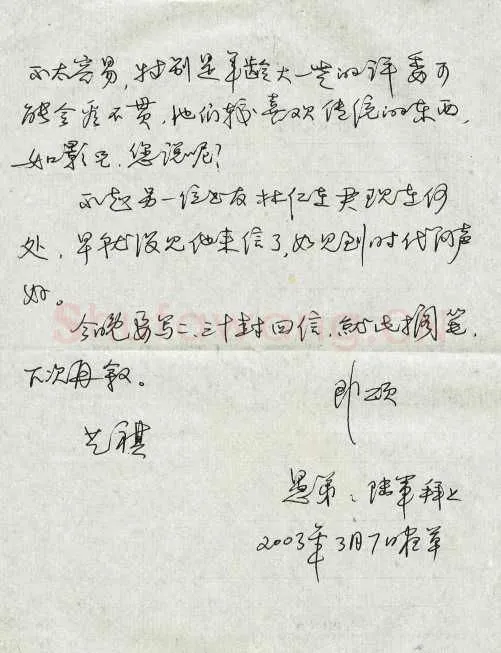 不太容易,特别是年龄大一些的评委可
能会看不惯,他们较喜欢传统的东西,
如影足。您说呢?
不知另一位书友林仁在君现在何
处,早就没见他来信了,如见到时代问声
好。
今晚要写二、三十封回信,就此搁笔,
下次再叙。
即颂
艺祺
愚弟:陆军拜上
2003年3月7日在草